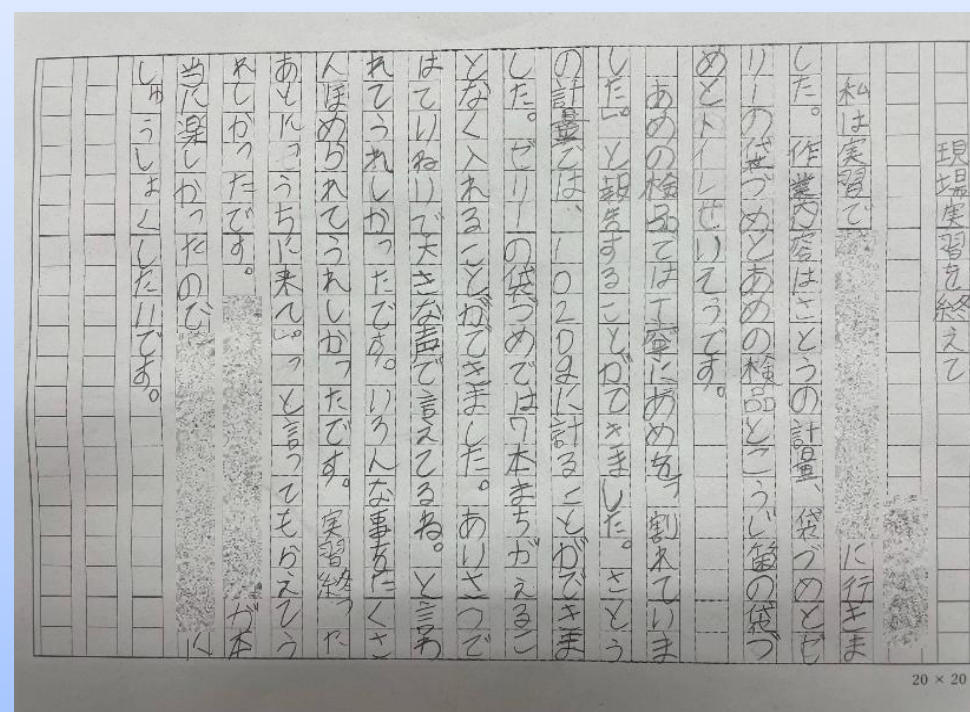 現場実習を終えて
私は実習で
に行きま
した。作業内容はさとうの計量、袋づめとゼ
リーの袋づめとあめの検品とこうじ菌の袋づ
めとトイレせいそうです。
あめの検品ては丁寧にあめをっ割れていま
した。」と報告することができました。さとう
の計量では、1020gに計ることができま
した。ゼリーの袋づめでは7本まちがえるこ
となく入れることができました。ありさつで
はていねいで大きな声で言えてるね。と言わ
れてうれしかったです。いろんな事をたくさ
んほめられてうれしかったです。実習終った
あとにっうちに来て。」っと言ってもらえてう
れしかったです。
が本
当に楽しかったので
に
しゅうしょくしたいです。
20 × 20